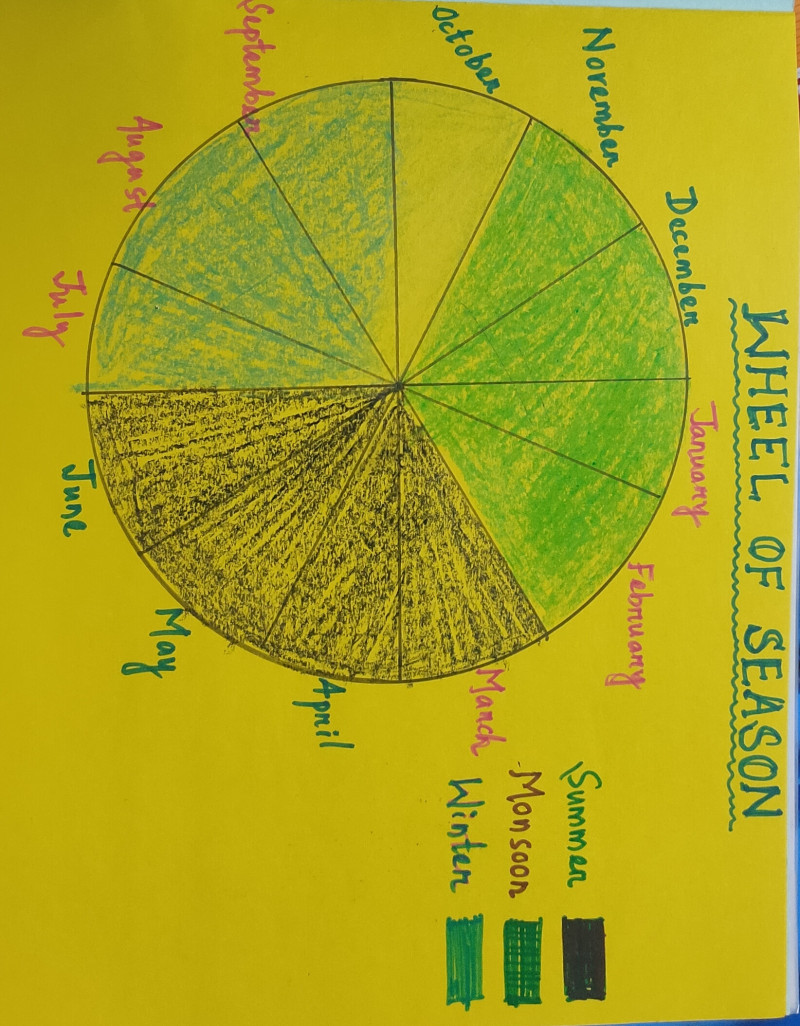 WHEEL OF SEASON
January
February
March
April
May
June
July
August
September
October
November
December
Summer
Monsoon
Winter